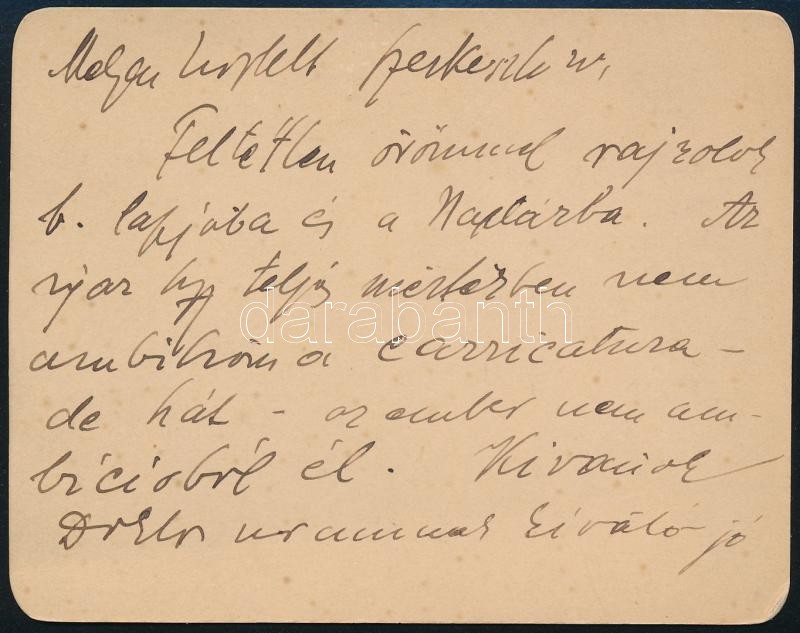 Mélyen tisztelt Szerkesztő úr,
Feltétlen örömmel rajzolok
b. lapjába és a Naptárba. Az
igaz hogy teljes mértékben nem
ambitióm a carricatura -
de hát - az ember nem am-
bícióból él. Kívánok
Doktor uramnak kiváló jó
darabanth